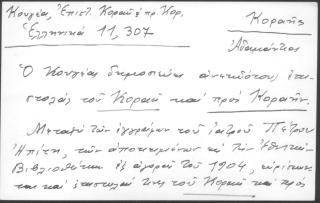 Κουγέας, Ἐπιστ. Κοραῆ ἢ πρ. Κορ.
Ἑλληνικά 11, 307
Κοραῆς
Ἀδαμάντιος
Ὁ Κουγέας δημοσιεύει ἀνεκδότους ἐπι-
στολάς τοῦ Κοραῆ καί πρός Κοραῆν.
Μεταξύ τῶν ἐγγράφων τοῦ ἰατροῦ Πέτρου
Ἠπίτη, τῶν ἀποκειμένων εἰς τήν Ἐθνικήν
Βιβλιοθήκην ἐξ ἀγορᾶς τοῦ 1904, εὑρίσκον-
ται καί ἐπιστολαί τινες τοῦ Κοραῆ καί πρός